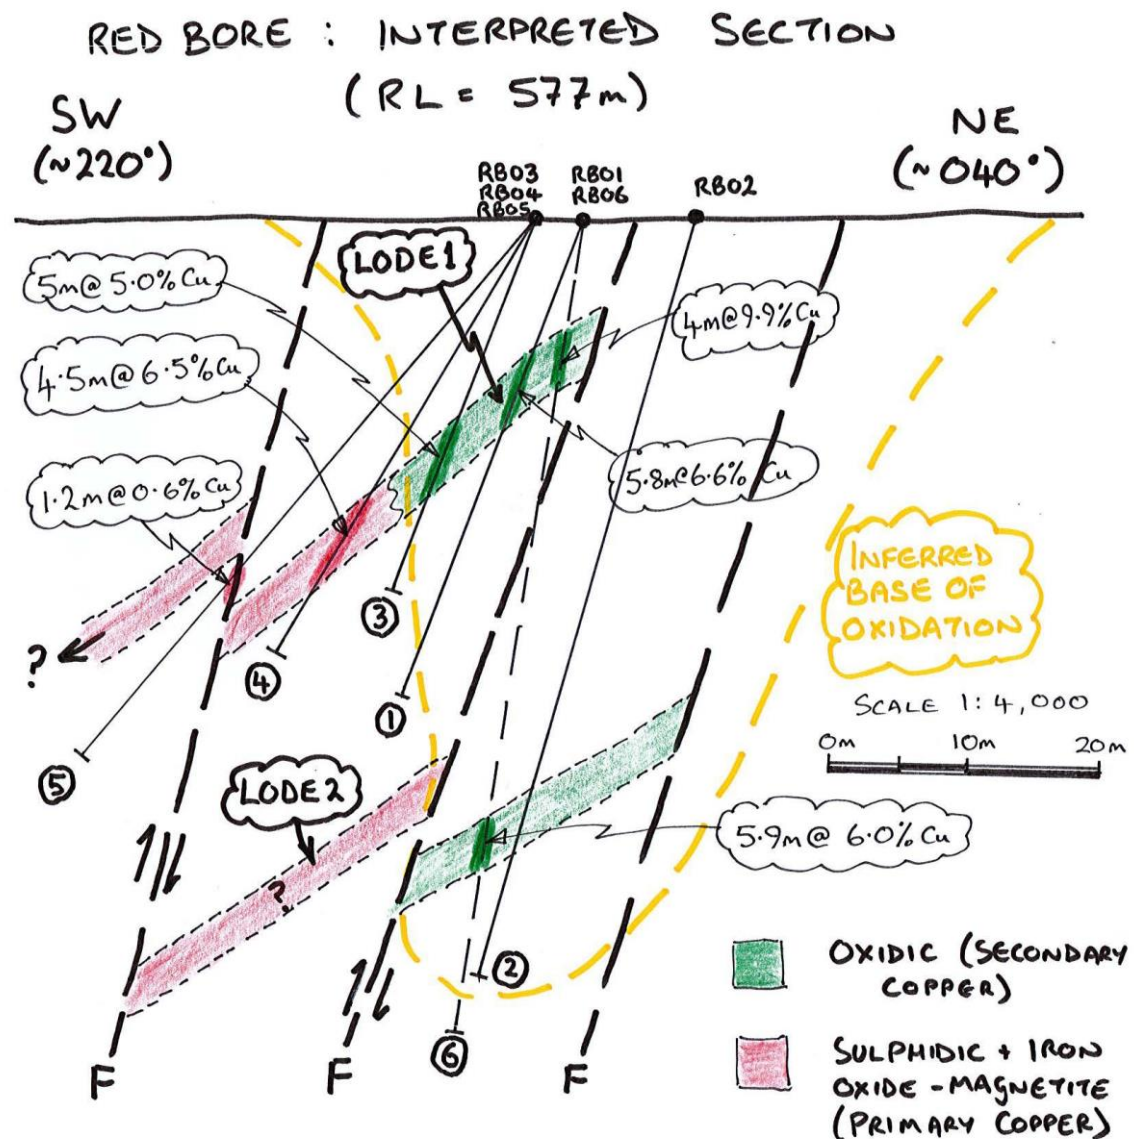 RED BORE : INTERPRETED SECTION
(RL = 577m)
SW
(~220°)
NE
(~040°)
RB03
RB04
RB05
RB01
RB06
RB02
LODE1
5m@5.0%Cu
4m@9.9%Cu
4.5m@6.5%Cu
5.8m@6.6% Cu
1.2m@0.6%Cu
INFERRED
BASE OF
OXIDATION
?
3
4
1
5
SCALE 1:4,000
0m 10m 20m
LODE2
5.9m@ 6.0% Cu
?
2
6
F
F
F
OXIDIC (SECONDARY
COPPER)
SULPHIDIC + IRON
OXIDE-MAGNETITE
(PRIMARY COPPER)